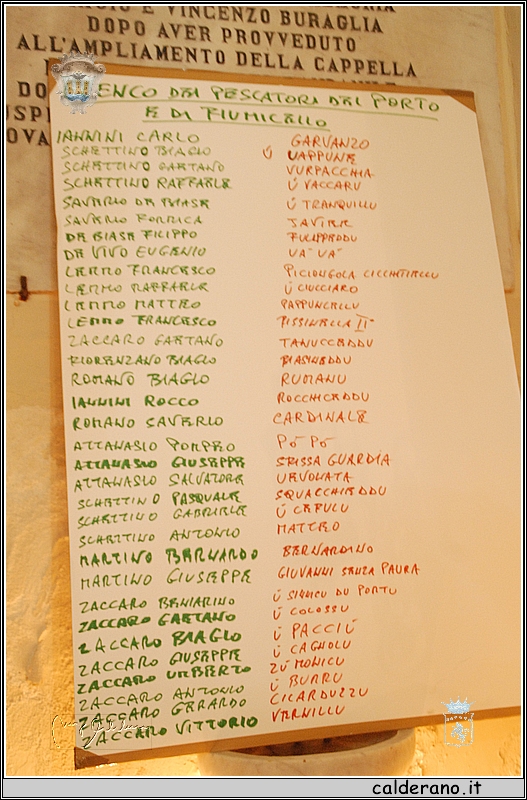 E VINCENZO BURAGLIA
DOPO AVER PROVVEDUTO
ALL'AMPLIAMENTO DELLA CAPPELLA
ELENCO DEI PESCATORI DEL PORTO
E DI FIUMICELLO
IANNINI CARLO GARVANZO
SCHETTINO BIAGIO Ú UAPPUNE
SCHETTINO GAETANO VURPACCHIA
SCHETTINO RAFFAELE Ú VACCARU
SAVERIO DE BIASE Ú TRANQUILLU
SAVERIO FORMICA SAVIERE
DE BIASE FILIPPO FULIPPODDU
DE VIVO EUGENIO VA' VA'
LEMMO FRANCESCO
LEMMO RAFFAELE Ú CIUCCIARO
LEMMO MATTEO PAPPUNCELLU
LEMMO FRANCESCO PISSINELLA II°
ZACCARO GAETANO TANUCCEDDU
FIORENZANO BIAGIO BIASINEDDU
ROMANO BIAGIO RUMANU
IANNINI ROCCO ROCCHICEDDU
ROMANO SAVERIO CARDINALE
ATTANASIO POMPEO PÒ PÒ
ATTANASIO GIUSEPPE SPISSA GUARDIA
ATTANASIO SALVATORE URVONATA
SCHETTINO PASQUALE SQUACCHIEDDU
SCHETTINO GABRIELE Ú CEFULU
SCHETTINO ANTONIO MATTEO
MARTINO BERNARDO BERNARDINO
MARTINO GIUSEPPE GIUVANNI SENZA PAURA
ZACCARO BENIAMINO Ú SINDICU DU PORTU
ZACCARO GAETANO Ú COLOSSU
ZACCARO BIAGIO Ú PACCIÚ
ZACCARO GIUSEPPE Ú CAGNOLU
ZACCARO UMBERTO ZÚ MONICU
ZACCARO ANTONIO Ú BURRU
ZACCARO GERARDO CICARDUZZU
ZACCARO VITTORIO VERNILLU
calderano.it